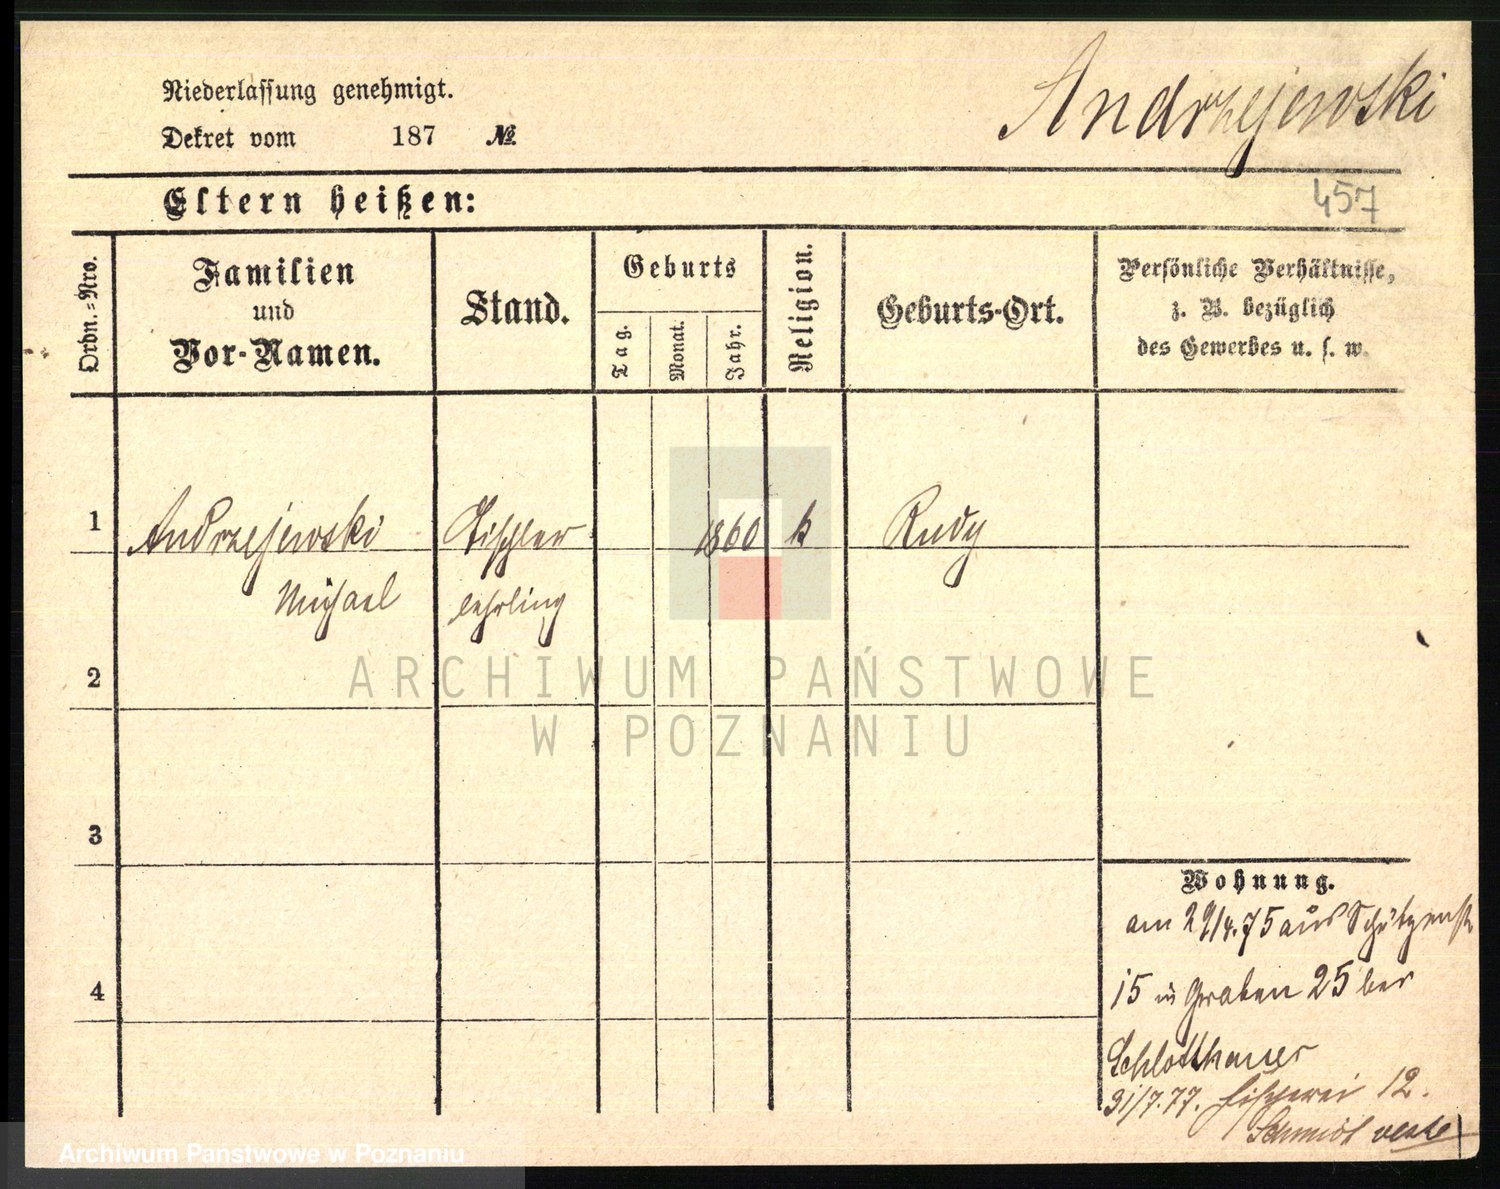 Andrzejewski
Niederlassung genehmigt.
Dekret vom 187 №
457
Eltern heißen:
Ordn.=Nro.
Familien
und
Vor-Namen.
Stand.
Geburts
Tag.
Monat.
Jahr.
Religion.
Geburts-Ort.
Persönliche Verhältnisse,
z. B. bezüglich
des Gewerbes u. s. w.
1 Andrzejewski Tischler 1860 k Rudy
Michael lehrling
2
3
4
Wohnung.
am 29/4.75 aus Schützenst
15 in Graben 25 bei
Schlotthauer
31/7.77. Fischerei 12.
Schmidt
ARCHIWUM PAŃSTWOWE
W POZNANIU
Archiwum Państwowe w Poznaniu